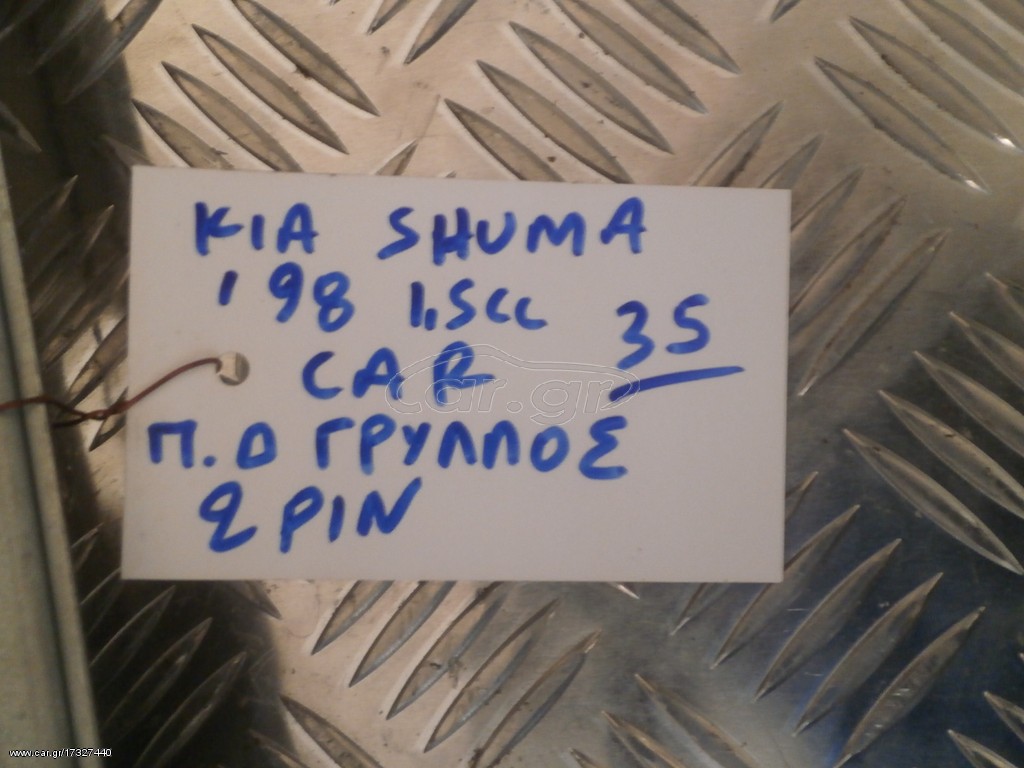 KIA SHUMA
'98 1,5cc 35
CAR
Π.Δ ΓΡΥΛΛΟΣ
2 PIN
car.gr
www.car.gr/17327440